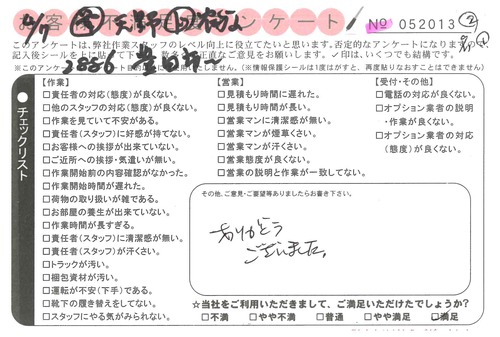 アンケート № 052013
このアンケートは、弊社作業スタッフのレベル向上に役立てたいと思います。否定的なアンケートになります
記入後シールを上に貼って下
正直なご意見をお願いします。✓印は、いくつでも結構です。
(※情報保護シールは1度はがすと、再度貼りなおすことはできません)
チェックリスト
【作業】
□責任者の対応(態度)が良くない。
□他のスタッフの対応(態度)が良くない。
□作業を見ていて不安がある。
□責任者(スタッフ)に好感が持てない。
□お客様への挨拶が出来ていない。
□ご近所への挨拶・気遣いが無い。
□作業開始前の内容確認がなかった。
□作業開始時間が遅れた。
□荷物の取り扱いが雑である。
□お部屋の養生が出来ていない。
□作業時間が長すぎる。
□責任者(スタッフ)に清潔感が無い。
□責任者(スタッフ)が汗くさい。
□トラックが汚い。
□梱包資材が汚い。
□運転が不安(下手)である。
□靴下の履き替えをしてない。
□スタッフにやる気がみられない。
【営業】
□見積もり時間に遅れた。
□見積もり時間が長い。
□営業マンに清潔感が無い。
□営業マンが煙草くさい。
□営業マンが汗くさい。
□営業態度が良くない。
□営業の説明と作業が一致してない。
【受付・その他】
□電話の対応が良くない。
□オプション業者の説明
・作業が良くない。
□オプション業者の対応
(態度)が良くない。
その他、ご意見・ご要望等ありましたらお書き下さい。
ありがとう
ございました。
☆当社をご利用いただきまして、ご満足いただけたでしょうか?
□不満 □やや不満 □普通 □やや満足 ☑満足